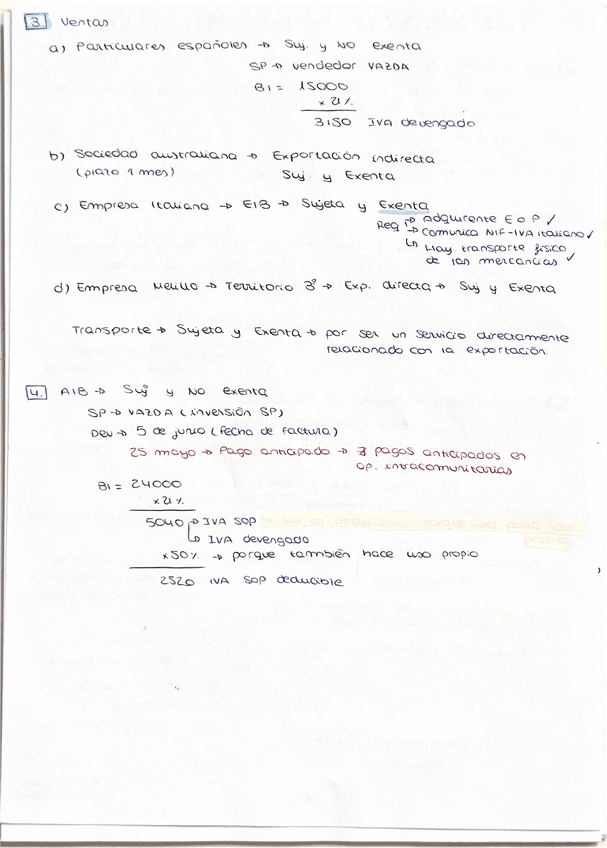 3 Ventas
a) Particulares españoles → Suj. y No exenta
SP → vendedor VAZDA
BI = 15000
x 21%
3150 IVA devengado
b) Sociedad australiana → Exportación indirecta
(plazo 1 mes) Suj y Exenta
c) Empresa Italiana → EIB → Sujeta y Exenta
Req → Adquirente E o P ✓
→ Comunica NIF-IVA italiano ✓
↳ Hay transporte físico
de las mercancías ✓
d) Empresa Melilla → Territorio 3º → Exp. directa → Suj y Exenta
Transporte → Sujeta y Exenta → por ser un servicio directamente
relacionado con la exportación.
4. AIB → Suj y No exenta
SP → VAZDA (inversión SP)
Dev → 5 de junio (fecha de factura)
25 mayo → Pago anticipado → ∄ pagos anticipados en
op. intracomunitarias
BI = 24000
x 21%
5040 → IVA SOP
↳ IVA devengado
x 50% → porque también hace uso propio
2520 IVA SOP deducible